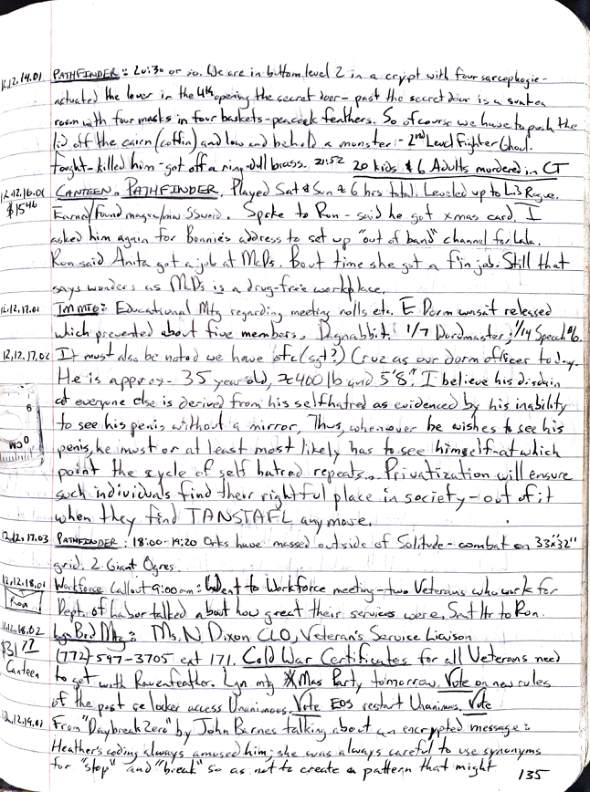 12.12.14.01 PATHFINDER: 20:30 or so. We are in bottom level 2 in a crypt with four sarcophagie-
actuated the lever in the 4th opening the secret door - past the secret door is a sunken
room with four masks in four baskets - peacock feathers. So of course we have to push the
lid off the cairn (coffin) and low and behold a monster - 2nd Level Fighter Ghoul.
Fought - killed him - got off a ring - dull brass. 21:52 20 kids & 6 Adults murdered in CT
12.12.16.01 CANTEEN. PATHFINDER. Played Sat & Sun & 6 hrs total. Leveled up to L:3 Rogue.
$15.46 Earned/found magic/ Sword. Spoke to Ron - said he got xmas card. I
asked him again for Bonnie's address to set up "out of band" channel for Lala.
Ron said Anita got a job at McDs. Bout time she got a f'in job. Still that
says wonders as McDs is a drug-free workplace.
12.12.17.01 Educational Mtg regarding meeting rolls etc. E Dorm wasn't released
which prevented about five members. Dagnabbit. 1/7 Wordmaster; 1/14 Speech 6.
12.12.17.02 It must also be noted we have ofc (sgt?) Cruz as our dorm officer today.
He is approx- 35 year old, ≈400 lb and 5'8". I believe his disdain
at everyone else is derived from his self hatred as evidenced by his inability
to see his penis without a mirror, Thus, whenever he wishes to see his
penis, he must or at least most likely has to see himself - at which
point the cycle of self hatred repeats.. Privatization will ensure
such individuals find their rightful place in society - out of it
when they find TANSTAFL anymore.
12.12.17.03 PATHFINDER: 18:00-19:20 Orks have massed outside of Solitude - combat on 33"x32"
grid. 2 Giant Ogres.
12.12.18.01 Workforce Callout 9:00am: Went to Workforce meeting - two Veterans who work for
Ron Dept. of Labor talked about how great their services were. Sent ltr to Ron.
12.12.18.02 Lgn Brd Mtg: Ms. N Dixon CLO, Veteran's Service Liaison
(772)-597-3705 ext 171. Cold War Certificates for all Veterans need
Canteen to get with Ravenfeather. Lgn mtg XMas Party tomorrow. Vote on new rules
of the post se locker access Unanimous. Vote EOS restart Unanimous. Vote
12.12.19.01 From "Daybreak Zero" by John Barnes talking about an encrypted message:
Heather's coding always amused him; she was always careful to use synonyms
for "stop" and "break" so as not to create a pattern that might
135